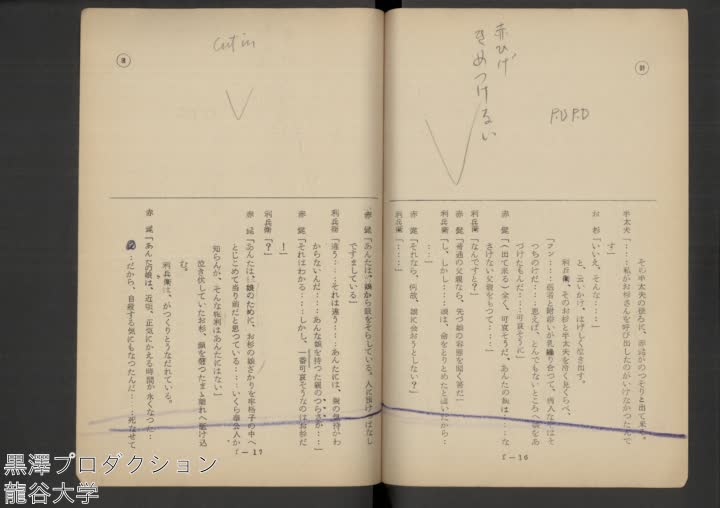 赤ひげ
きめつけるい
P.D P.D
その半太夫の後ろに、赤髯がのつそりと出て来る。
半太夫「……私がお杉さんを呼び出したのがいけなかつたんで
す」
お杉「いいえ、そんな……」
と、云いかけ、はげしく泣き出す。
利兵衛、そのお杉と半太夫を冷く見くらべ、
つちのけだ……思えば、とんでもないところへ娘をあ
づけたもんだ……可哀そうに」
赤髯「(出て来る)全く、可哀そうだ、あんたの娘は……な
さけない父親をもつて……」
利兵衛「なんですと?」
赤髯「普通の父親なら、先づ娘の容態を聞く筈だ」
利兵衛「し、しかし……娘は、命をとりとめたと聞いたから…
…」
赤髯「それなら、何故、娘に会おうとしない?」
利兵衛「……」
r-16
cut in
赤髯「あんたは、娘から眼をそらしている。人に預けつぱなし
ですましている」
利兵衛「違う……それは違う……あんたには、親の気持がわ
からないんだ……あんな娘を持つた親のつらさが……」
赤髯「それはわかる……しかし、一番可哀そうなのはお杉だ
!」
利兵衛「?」
赤髯「あんたは、娘のために、お杉の娘ざかりを牢格子の中へ
とじこめて当り前だと思つている……いくら奉公人か
知らんが、そんな権利はあんたにはない」
泣き伏していたお杉、顔を覆つたまま離れへ駈け込
む。
利兵衛は、がつくりとうなだれている。
赤髯「あんたの娘は、近頃、正気にかえる時間が永くなつた…
…だから、自殺する気にもなつたんだ……死なせて
r-17
黒澤プロダクション
龍谷大学